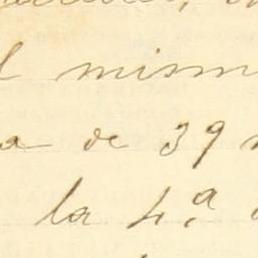 l mism
a de 39
la 4.a